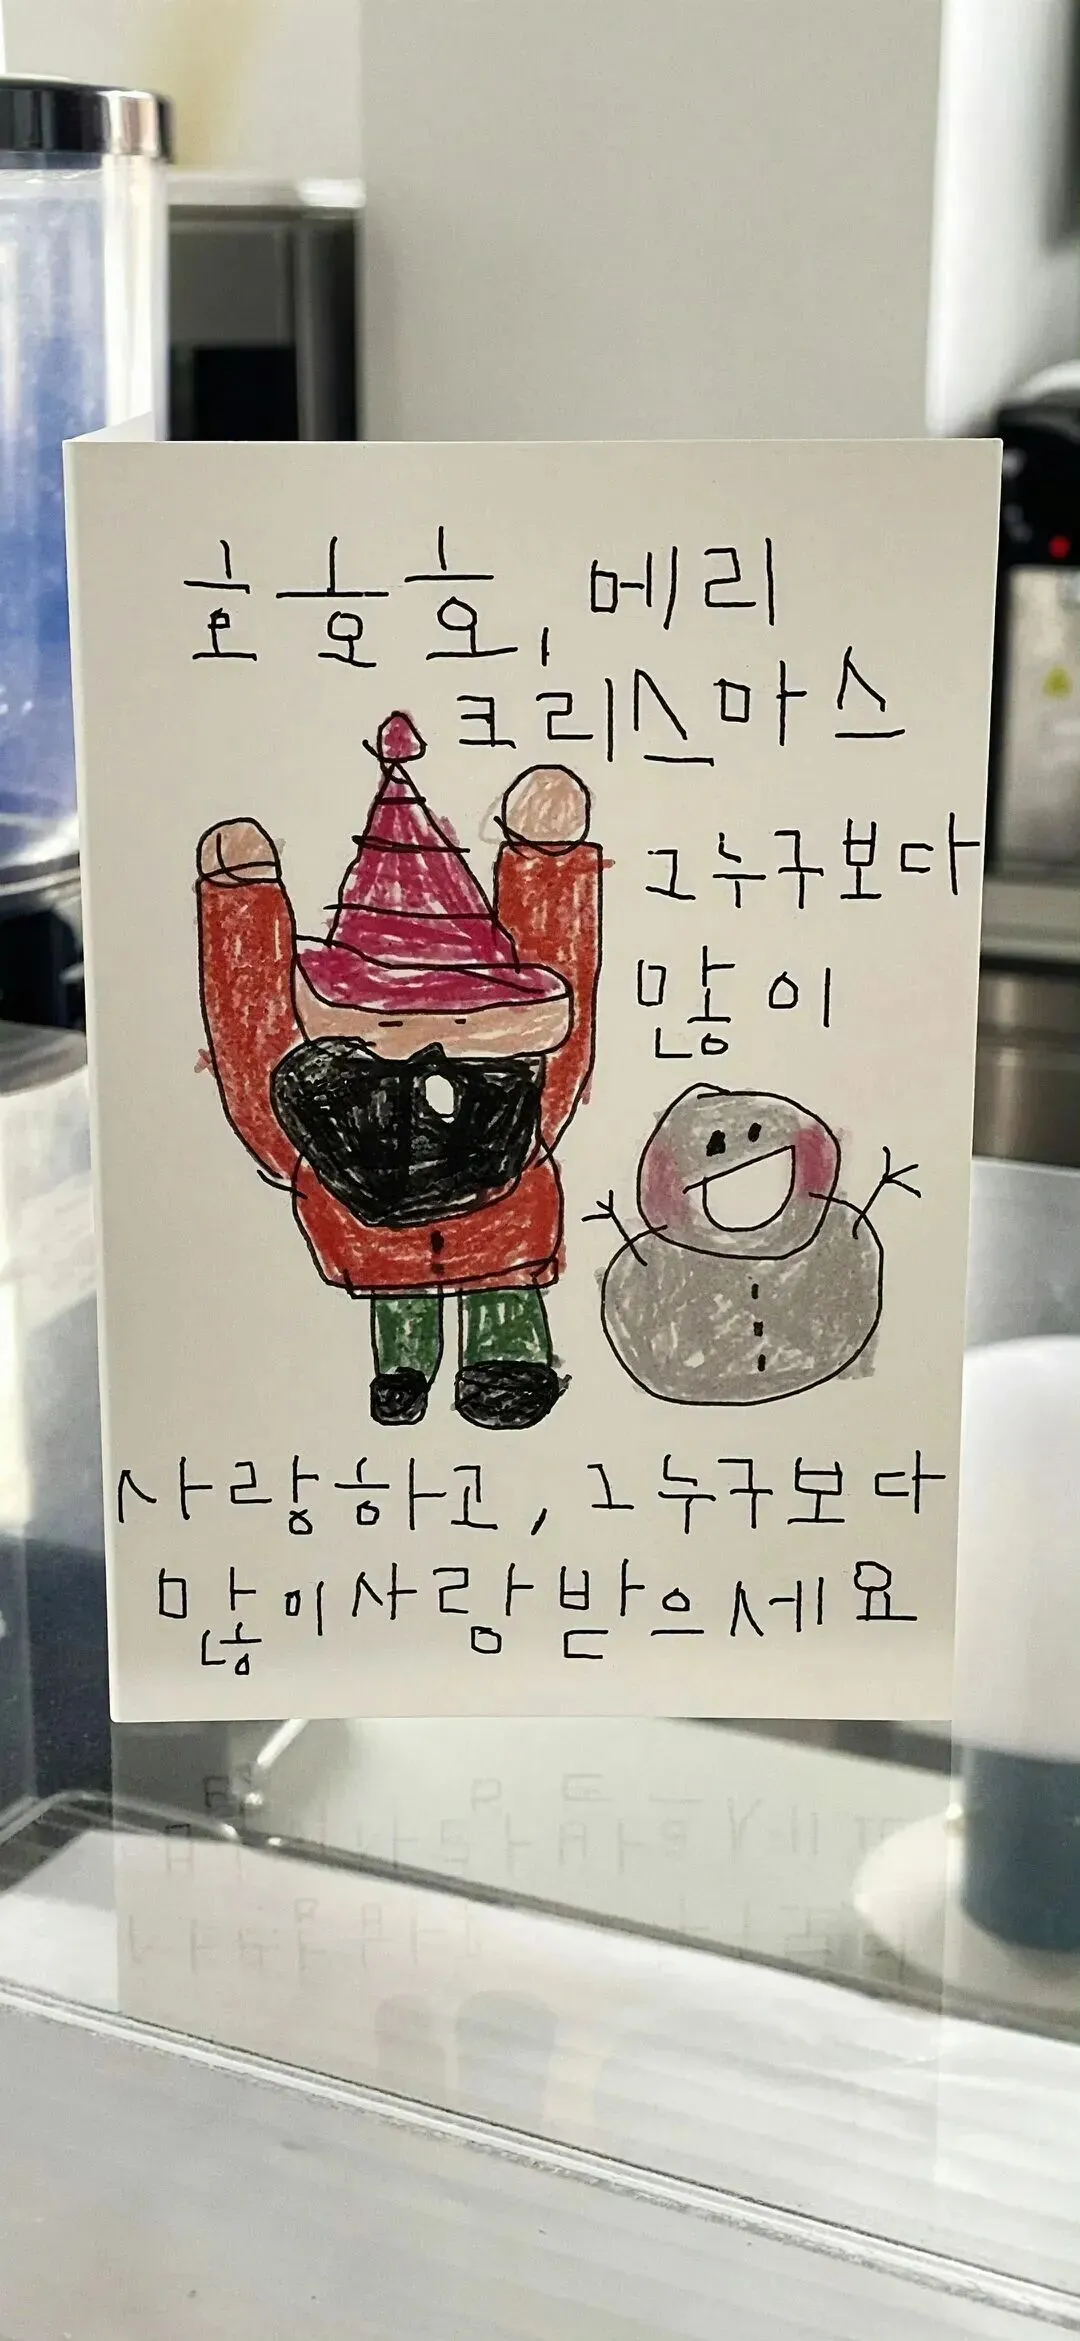 호호호, 메리
크리스마스
그누구보다
많이
사랑하고, 그누구보다
많이사랑받으세요